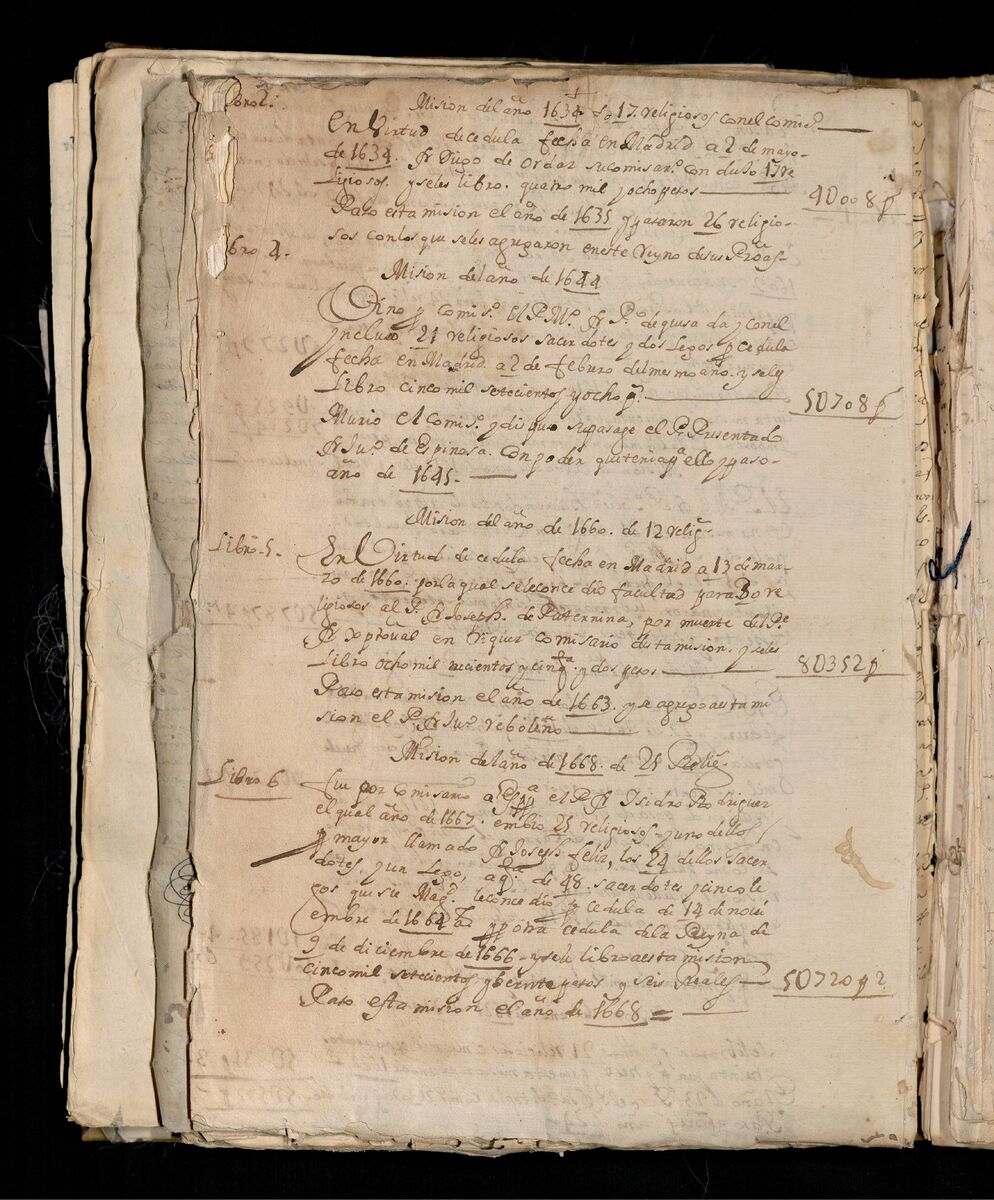 Mision del año 1634 do 17. religiosos con el comis.º
En Virtud de cedula fecha en Madrid a 2 de mayo
de 1634. fr Diego de Ordaz su comisar.º con dulo 17 re
ligiosos. y seles libro. quatro mil y ocho pesos 4U008 p
Paso esta mision el año de 1635 y pasaron 26 religio-
sos con los que seles agregaron en este Reyno de sus Proãs-
bro 4.
Mision del año de 1644
Vino p comis.º El P. M.º fr P.º de quesada y con el
yncluso 21 religiosos sacerdotes y dos Legos p cedula
fecha en Madrid a 2 de febrero del mesmo año. y sely
Libro cinco mil setecientos y ocho p.s 5U708 p
Murio el Comis.º y dispuso su pasage el P.e Presentado
fr Ju.º de Espinosa. con poder que tenia p.a ello y paso-
año de 1645.
Mision del año de 1660. de 12 relig.s
Libro-5.
En Virtud de cedula fecha en Madrid a 13 de mar-
zo de 1660. por la qual se le concedio facultad para 30 re
ligiosos al P. fr Joseph. de Paternina, por muerte del P.e
fr Xptoual en Riquez comisario desta mision. y seles
Libro ocho mil trecientos y cinq.ta y dos pesos 8U352 p
Paso esta mision el año de 1663. y se agrego a esta mi
sion el P. fr Ju.º reboleño
Mision del año de 1668. de 25 Relig.s
Libro 6
Fue por Comisario a Esp.a el P. fr Isidro Rodriguez
el qual año de 1667. embio 25 religiosos y uno dellos
p mayor llamado fr Joseph feliz, los 24 dellos sacer
dotes. y un Lego, a q.ta de 48. sacerdotes y cinco le
gos que su Mag.d le concedio p cedula de 14 de novi
embre de 1664 a.s y p otra cedula de la Reyna de
9 de diciembre de 1666 y se le libro a esta mision
cinco mil setecientos y beinte pesos y seis Reales 5U720 p
Paso esta mision el año de 1668